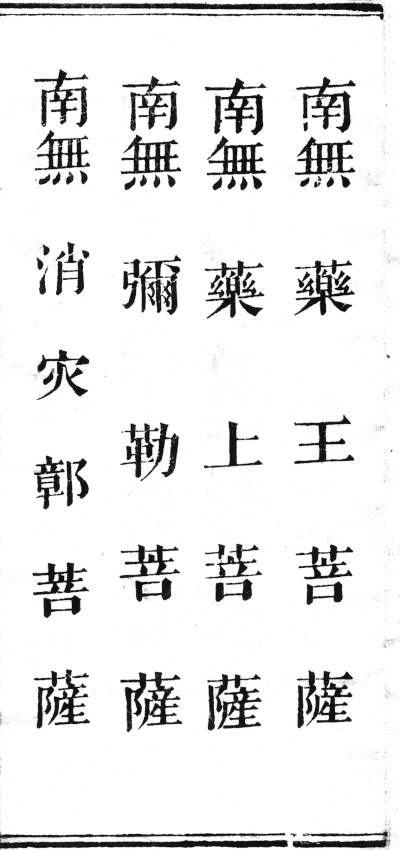 南無藥王菩薩
南無藥上菩薩
南無彌勒菩薩
南無消灾鄣菩薩